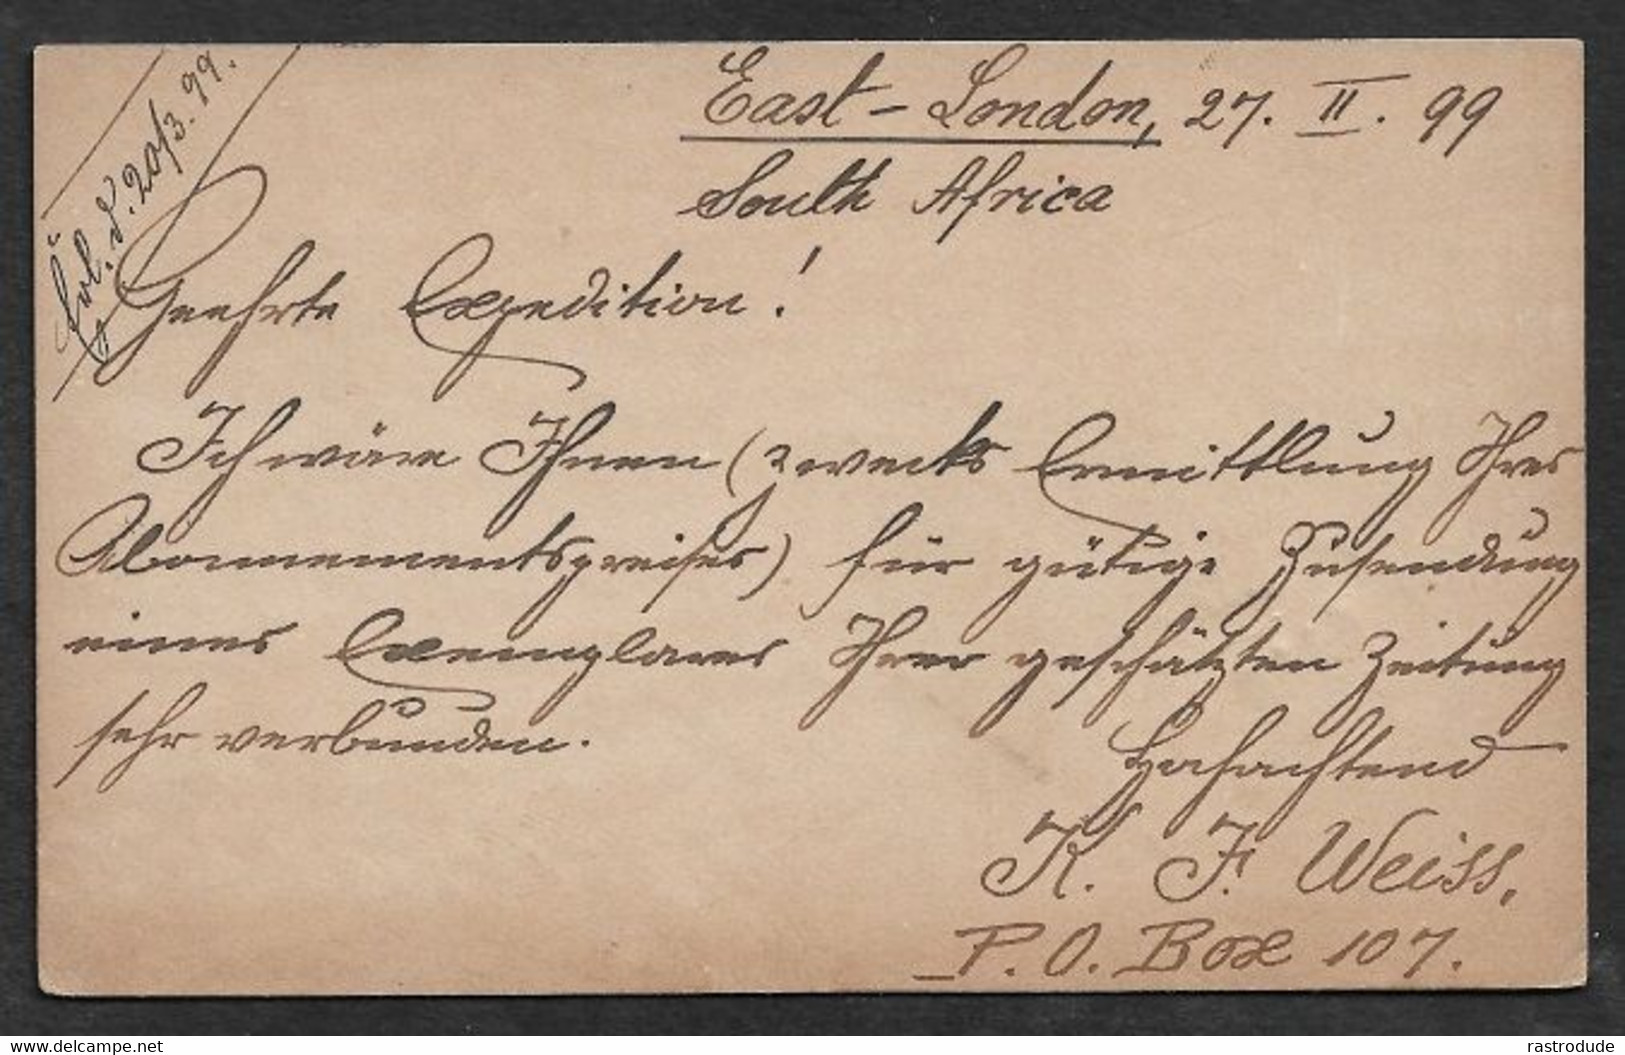 East-London, 27. II. 99
South Africa
20/3.99.
Geehrte Expedition!
Ich wäre Ihnen (zwecks Ermittlung Ihres
Abonnementspreises) für gütige Zusendung
eines Exemplares Ihrer geschätzten Zeitung
sehr verbunden.
Hochachtend
K. F. Weiss,
P.O. Box 107.
www.delcampe.net
rastrodude